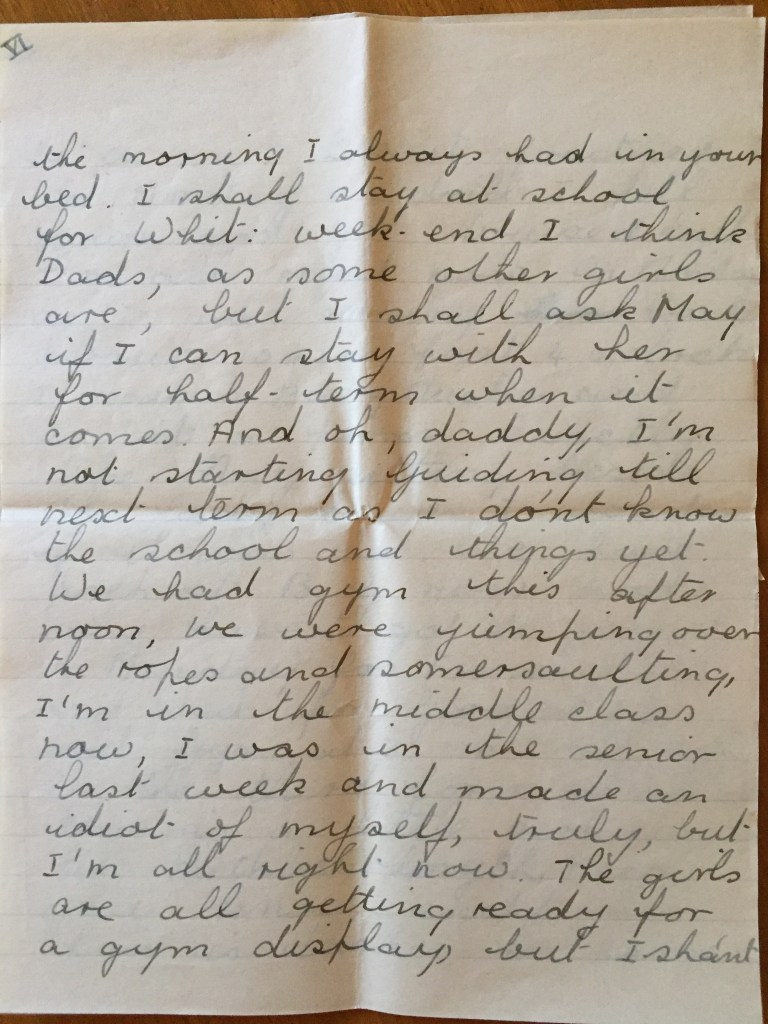 VI
the morning I always had in your
bed. I shall stay at school
for Whit: week-end I think
Dads, as some other girls
are, but I shall ask May
if I can stay with her
for half-term when it
comes. And oh, daddy, I'm
not starting Guiding till
next term as I do'nt know
the school and things yet.
We had gym this after
noon, we were jumping over
the ropes and somersaulting,
I'm in the middle class
now, I was in the senior
last week and made an
idiot of myself, truly, but
I'm all right now. The girls
are all getting ready for
a gym display but I sha'nt